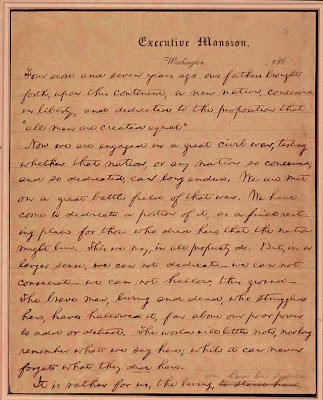 Executive Mansion,
Washington, , 186 .
Four score and seven years ago our fathers brought
forth, upon this continent, a new nation, conceived
in liberty, and dedicated to the proposition that
"all men are created equal"
Now we are engaged in a great civil war, testing
whether that nation, or any nation so conceived,
and so dedicated, can long endure. We are met
on a great battle field of that war. We have
come to dedicate a portion of it, as a final rest-
ing place for those who died here, that the nation
might live. This we may, in all propriety do. But, in a
larger sense, we can not dedicate – we can not
consecrate – we can not hallow, this ground –
The brave men, living and dead, who struggled
here, have hallowed it, far above our poor power
to add or detract. The world will little note, nor long
remember what we say here; while it can never
forget what they did here.
It is rather for us, the living, to stand here,